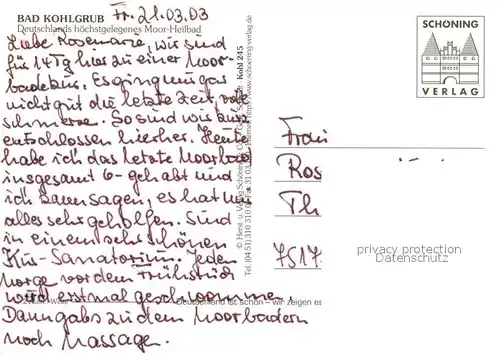 Fr. 21.03.03
BAD KOHLGRUB
Deutschlands höchstgelegenes Moor-Heilbad
Liebe Rosemarie, wir sind
für 14 Tg hier zu einer Moor
badekur. Es ging uns gar
nicht gut die letzte Zeit, viele
schmerzen. So sind wir kurz
entschlossen hierher. Heute
habe ich das letzte Moorbad
insgesamt 6 - gehabt und
ich kann sagen, es hat mir
alles sehr geholfen. Sind
in einem sehr schönen
Kur-Sanatorium. Jeden
Morge vor dem Frühstück
wird erstmal geschwommen.
Dann gabs zu dem Moorbadern
noch Massagen.
Kohl 245
Deutschland ist schön – wir zeigen es
SCHÖNING
VERLAG
Frau
Ros
Th
7517
privacy protection
Datenschutz